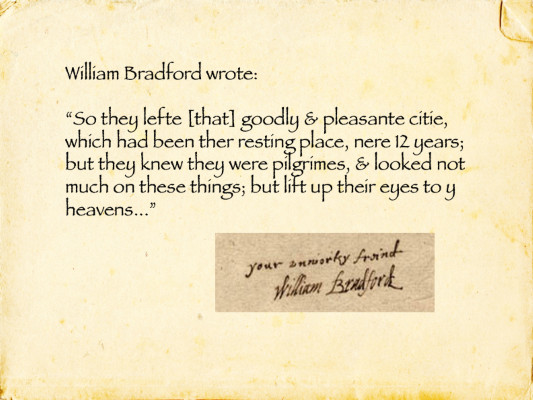 William Bradford wrote:
“So they lefte [that] goodly & pleasante citie,
which had been ther resting place, nere 12 years;
but they knew they were pilgrimes, & looked not
much on these things; but lift up their eyes to y
heavens...”
your unworthy freind
William Bradford